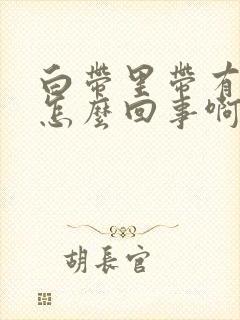 白帶里帶有
怎麼回事啊
胡長官